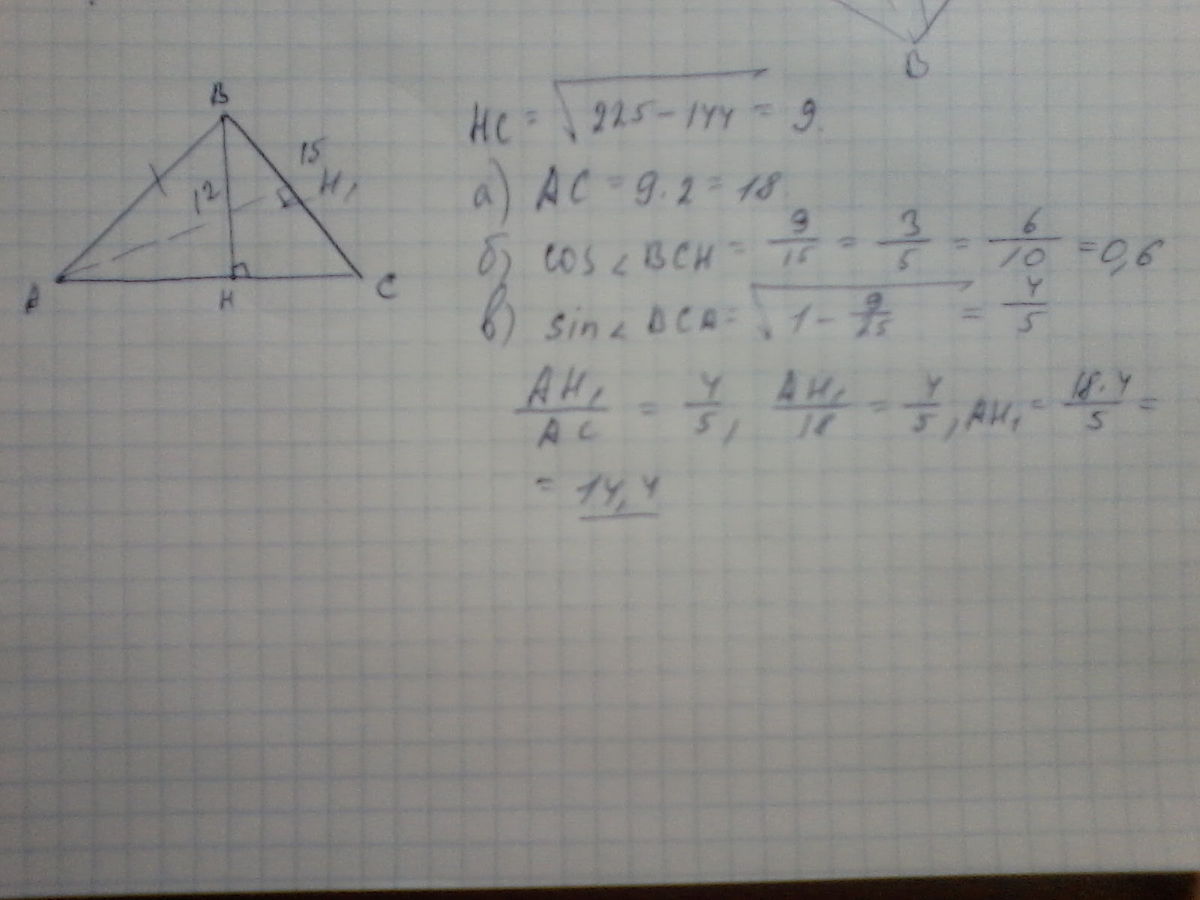 B
B
15
12
H₁
A
H
C
HC = √225-144 = 9.
а) AC = 9·2 = 18
б) cos∠BCH = 9/15 = 3/5 = 6/10 = 0,6
в) sin∠BCA = √1 - 9/25 = 4/5
AH₁/AC = 4/5, AH₁/18 = 4/5, AH₁ = 18·4/5 =
= 14,4